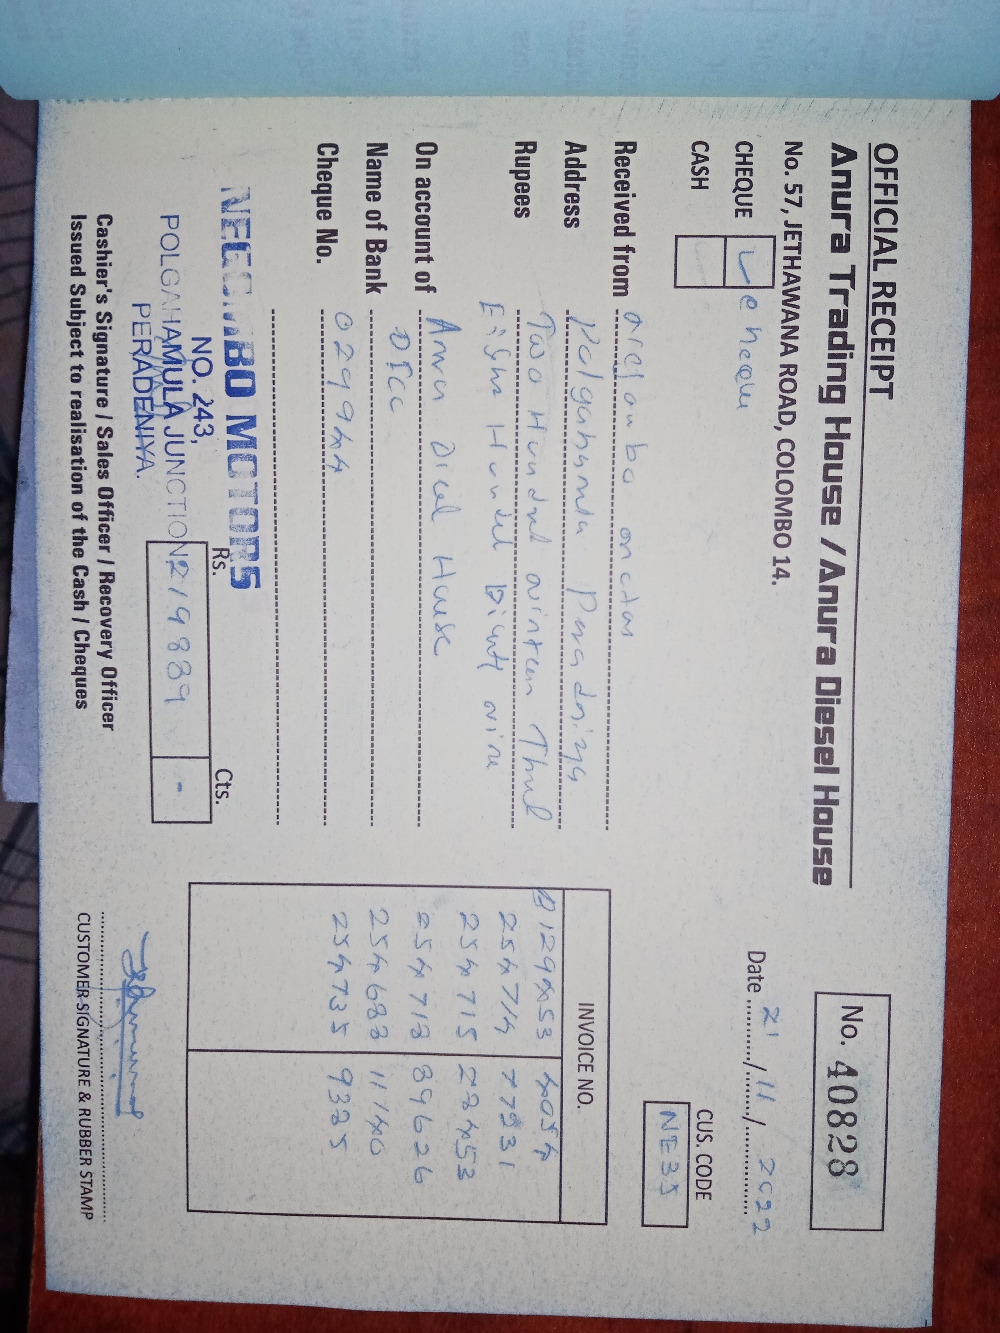 OFFICIAL RECEIPT
Anura Trading House / Anura Diesel House
No. 57, JETHAWANA ROAD, COLOMBO 14.
No. 40828
Date 21 / 11 / 2022
CHEQUE cheque
CASH
CUS. CODE
NE35
Received from
Address Polgahamula Peradniya
Rupees Two Hundred
On account of Anura Disel House
Name of Bank DFCC
Cheque No. 029944
INVOICE NO.
129453 4054
254714 77231
254715 28453
254718 89626
254688 11140
254735 9335
NEGOMBO MOTORS
NO. 243,
POLGAHAMULA JUNCTION
PERADENIYA.
Rs. Cts.
219889 -
Cashier's Signature / Sales Officer / Recovery Officer
Issued Subject to realisation of the Cash / Cheques
CUSTOMER SIGNATURE & RUBBER STAMP